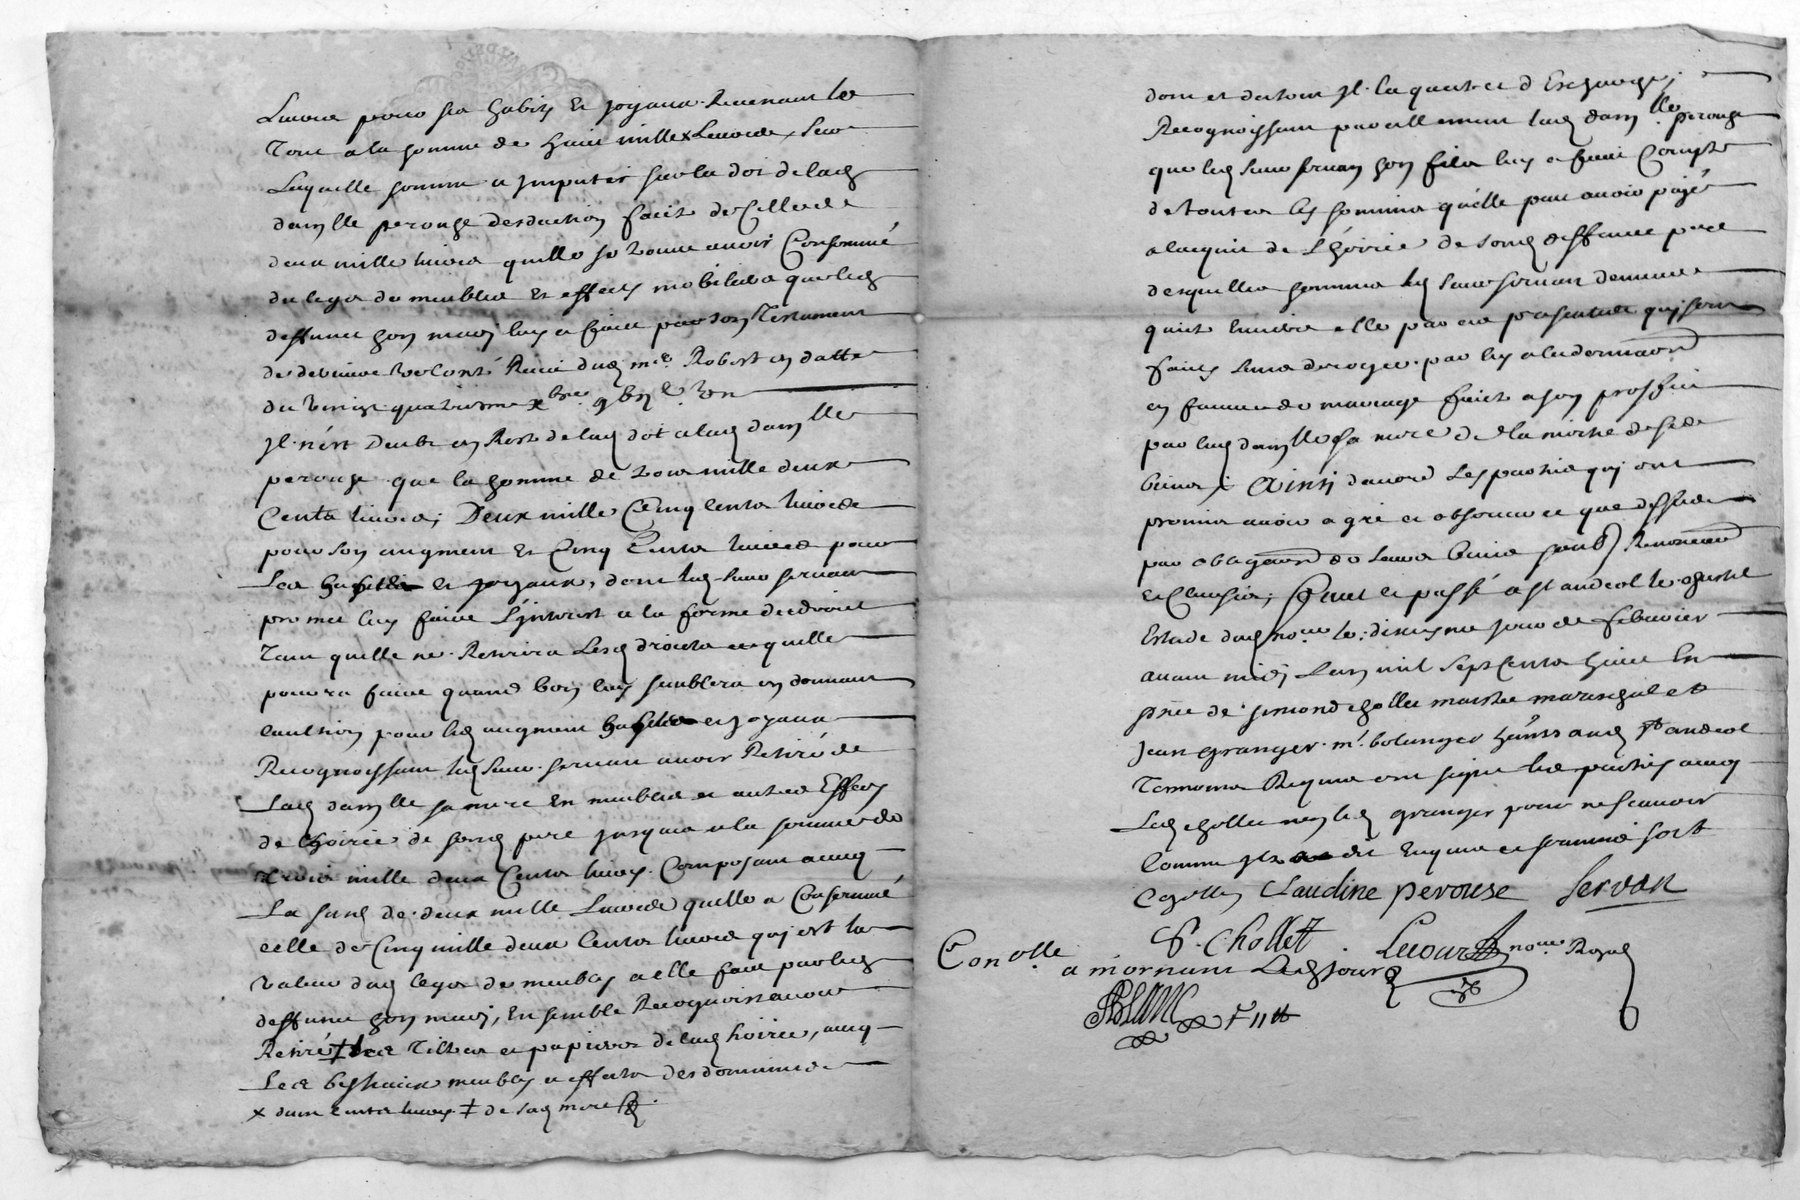 Livres pour ses habits et joyaux Revenant le
Tout a la somme de huict mille x Livres, Sur
Laquelle somme a jmputer sur la dot de lad
damlle perouse desduction faict de Celle de
deux mille livres quelle se trouve avoir Consommé
du legat de meubles et effects mobiliers que led
deffunct son mary luy a faict par son Testament
de derniere volonté Receu dud me Robert en datte
du vingt quatriesme
Jl n'est Deub en Reste de lad dot a lad damlle
perouse que la somme de trois mille deux
Cents livres; Deux mille Cinq Cents livres
pour son augment et Cinq Cents livres pour
Les habits et joyaux, dont led sieur servan
promet luy faire L'jnterest a la forme du droict
Tant quelle ne Retirera Lesd droicts ce quelle
pourra faire quand bon luy semblera en donnant
caution pour led augment habits et joyaux
Recognoissant led sieur servan avoir Retiré de
Lad damlle sa mere En meubles et autres Effects
de Lhoirie de sond pere jusques a la somme de
trois mille deux Cents livres Composant avecq
La susd de deux mille Livres quelle a Consommé
celle de Cinq mille deux Cents livres qui est la
valeur dud legat de meubles a elle faict par led
deffunct son mary, Ensemble Recognoist avoir
Retiré ‡ les Tiltres et papiers de lad hoirie, avecq
Les bestiaux meubles et effects des domaines
x deux Cents livres ‡ de sad mere
dont et du tout jl la quitte et d Escharge;
Recognoissant pareillement lad damlle perouse
que led sieur servan son fils luy a faict Compte
de toutes les sommes quelle peut avoir payé
a lacquit de Lhoirie de sond deffunct pere
desquelles sommes led sieur servan demeure
quitte Envers elle par ces presentes qui seront
faicts sans deroger par luy a la donnaon
en faveur de mariage faict a son proffit
par lad damlle sa mere de la moitié de ses
biens; Ainsi d'accord Les parties qui ont
promis avoir a gré et observer ce que dessus
par obligaon de Leurs biens Renonciaon
et Clauses; Faict et passé a St andeol le chastel
Estude dud nore le: dixiesme jour de febvrier
avant midy Lan mil sept Cents huict En
pnce de simond chollet maistre mareschal et
jean granger me bolanger hants aud St andeol
Temoins Requis ont signé les parties avecq
Led chollet non led granger pour ne scavoir
comme jl a dit Enquis et sommé soit
Claudine perouse Servan
S. Chollet Lecourt nore Royal
Conolle a mornant Led jour
BLANC